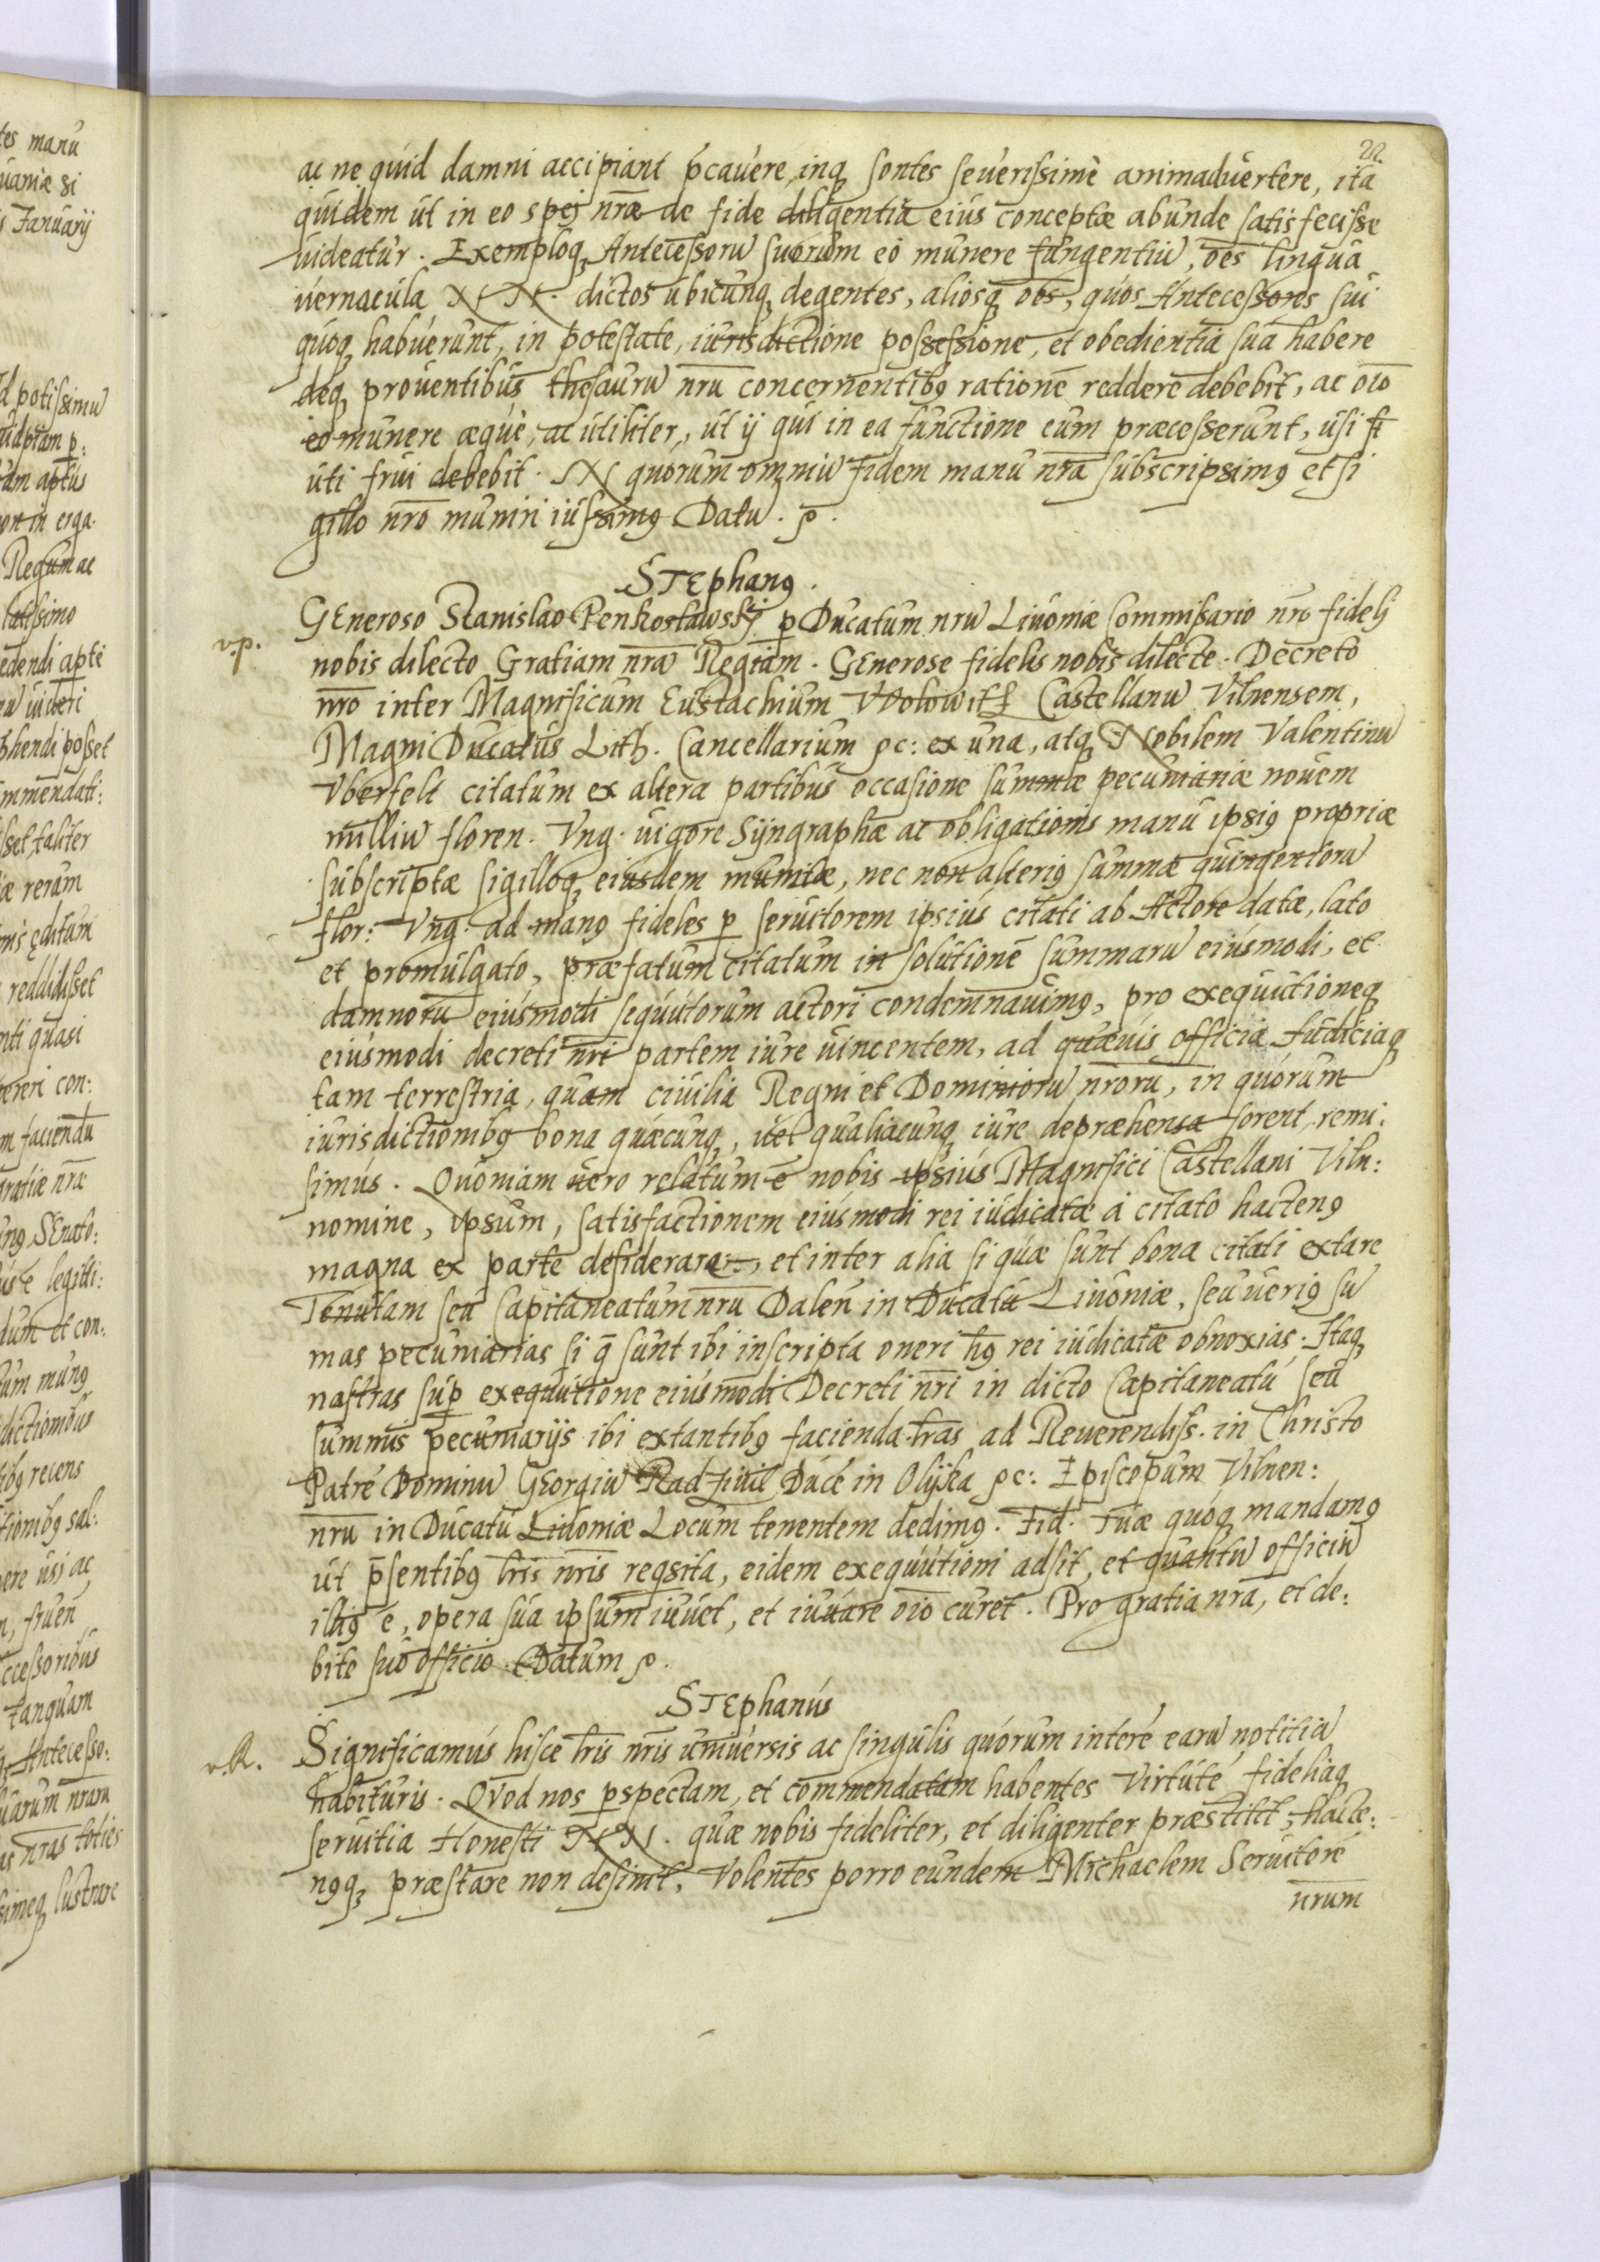 22.
ac ne quid damni accipiant p̄cavere, inq̨ sontes severissimè animadvertere, ita
quidem ut in eo spej nr̄æ de fide diligentia eius conceptæ abunde satisfecisse
videatur. Exemploq̨ Antecessorū suorum eo munere fungentiū, oēs lingua
vernacula NN. dictos ubicunq̨ degentes, aliosq̨ oēs, quos Antecessores sui
quoq̨ habuerunt, in potestate, iurisdictione possessione, et obedientia sua habere
deq̨ proventibus thesaurū nrū concernentibꝰ rationē reddere debebit, ac oīo
eo munere æquè, ac utiliter, ut ij qui in ea functione eum præcesserunt, usi st̄
uti frui debebit. IN quorum omniū fidem manu nr̄a subscripsimꝰ et si
gillo nr̄o muniri iussimꝰ Datū. ꝛc.
STEphanꝰ.
v.p.
GEneroso Stanislao Penkoslawskj p̱ Ducatum nrū Livoniæ Commissario nr̄o fidelj
nobis dilecto Gratiam nr̄ā Regiam. GEnerose fidelis nobis dilecte. Decreto
nr̄o inter Magnificum Eustachium VVolowitz Castellanū Vilnensem,
Magni Ducatus Lith. Cancellarium ꝛc: ex una, atq̨ Nobilem Valentinū
Vberfelt citatum ex altera partibus occasione summæ pecuniariæ novem
milliū floren. Vng. vigore Syngraphæ ac obligationis manu ipsiꝰ propriæ
subscriptæ sigilloq̨ eiusdem munitæ, nec non alteriꝰ summæ quingentorū
flor: Vng. ad manꝰ fideles p̱ servitorem ipsius citati ab Actore datæ, lato
et promulgato, præfatum citatum in solutionē summarū eiusmodi, et
damnorū eiusmodi sequutorum actori condemnavimꝰ, pro exequutioneq̨
eiusmodi decreti nr̄i partem iure vincentem, ad quævis officia Iudiciaq̨
tam terrestria, quam civilia Regni et Dominiorū nrōrū, in quorum
iurisdictionibꝰ bona quæcunq̨, vel qualiacunq̨ iure depræhensa forent, remi:
simus. Quoniam vero relatum ē nobis ipsius Magnifici Castellani Viln:
nomine, ipsum, satisfactionem eiusmodi rei iudicatæ a citato hactenꝰ
magna ex parte desiderare, et inter alia si quæ sunt bona citati extare
Tenutam seu Capitaneatum nrū Dalen in Ducatu Livoniæ, seu veriꝰ sū
mas pecuniarias si q̄ sunt ibi inscripta oneri hꝰ rei iudicatæ obnoxias. Itaq̨
nostras sup̱ exequutione eiusmodi Decreti nr̄i in dicto Capitaneatu seu
summis pecuniarijs ibi extantibꝰ facienda lr̄as ad Reverendiss. in Christo
Patrē Dominū GEorgiū Radziwil Ducē in Olyka ꝛc: Episcopum Vilnen:
nrū in Ducatu Livoniæ Locum tenentem dedimꝰ. Fid. Tuæ quoq̨ mandamꝰ
ut p̄sentibꝰ lr̄is nr̄is reqsita, eidem exequutioni adsit, et quantū officiū
illiꝰ ē, opera sua ipsum iuvet, et iuvare oīo curet. Pro gratia nr̄a, et de:
bite suo officio. Datum ꝛc.
STEphanus
v.R.
Significamus hisce lr̄is nr̄is universis ac singulis quorum interē earū notitiā
habituris. QVod nos p̱spectam, et commendatam habentes Virtutē fideliaq̨
servitia Honesti NN. quæ nobis fideliter, et diligenter præstitit, hacte:
nꝰq̨ præstare non desinit, Volentes porro eundem Michaelem Servitorē
nrum